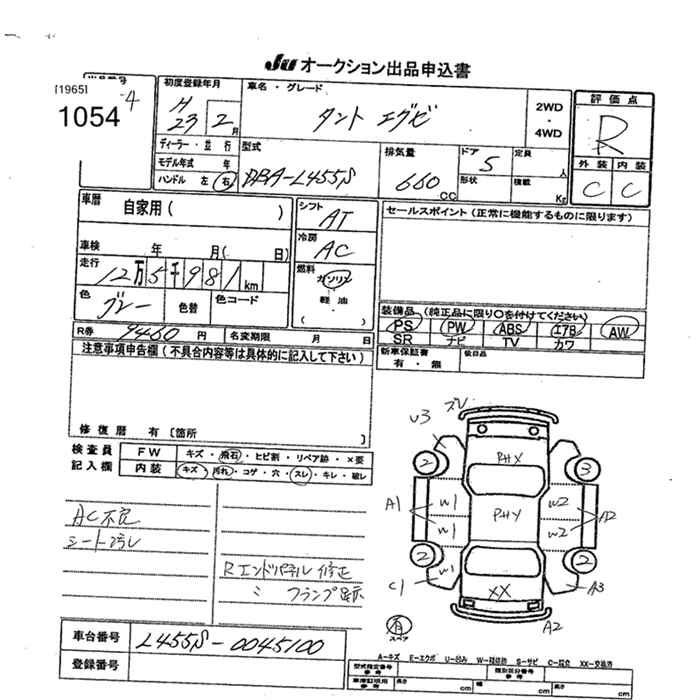 JU オークション出品申込書
[1965]
1054
-4
初度登録年月
H
23 2月
車名・グレード
タント エグビ
2WD
・
4WD
評価点
R
外装 内装
C C
ディーラー・並行
モデル年式 年
ハンドル 左 右
型式
DBA-L455S
排気量
660
CC
ドア
5
形状
定員
人
積載
Kg
車歴
自家用( )
車検 年 月( 日)
走行
12万5千981km
色
グレー
色替
色コード
R券 9460 円 名変期限 月 日
シフト
AT
冷房
AC
燃料
ガソリン
軽油
( )
セールスポイント(正常に機能するものに限ります)
装備品(純正品に限り○を付けてください)
PS PW ABS エアB AW
SR ナビ TV カワ
新車保証書
有・無
後日品
注意事項申告欄(不具合内容等は具体的に記入して下さい)
修復歴 有〔箇所 〕
検査員
記入欄
FW キズ・飛石・ヒビ割・リペア跡・×要
内装 キズ・汚れ・コゲ・穴・スレ・キレ・破レ
AC不良
シート汚レ
Rエンドパネル修正
〃 フランプ跡
U3 ズレ
2 RHX 3
A1 W1 W2 A2
W1 PHY W2
2 W1 2
C1 XX A3
A2
有
スペア
車台番号 L455S-0045100
登録番号
A-キズ E-エクボ U-凹み W-板修跡 S-サビ C-腐食 XX-交換済
型式指定番号
参考
類別区分番号
参考
車庫証明用
参考
長さ cm 幅 cm 高さ cm